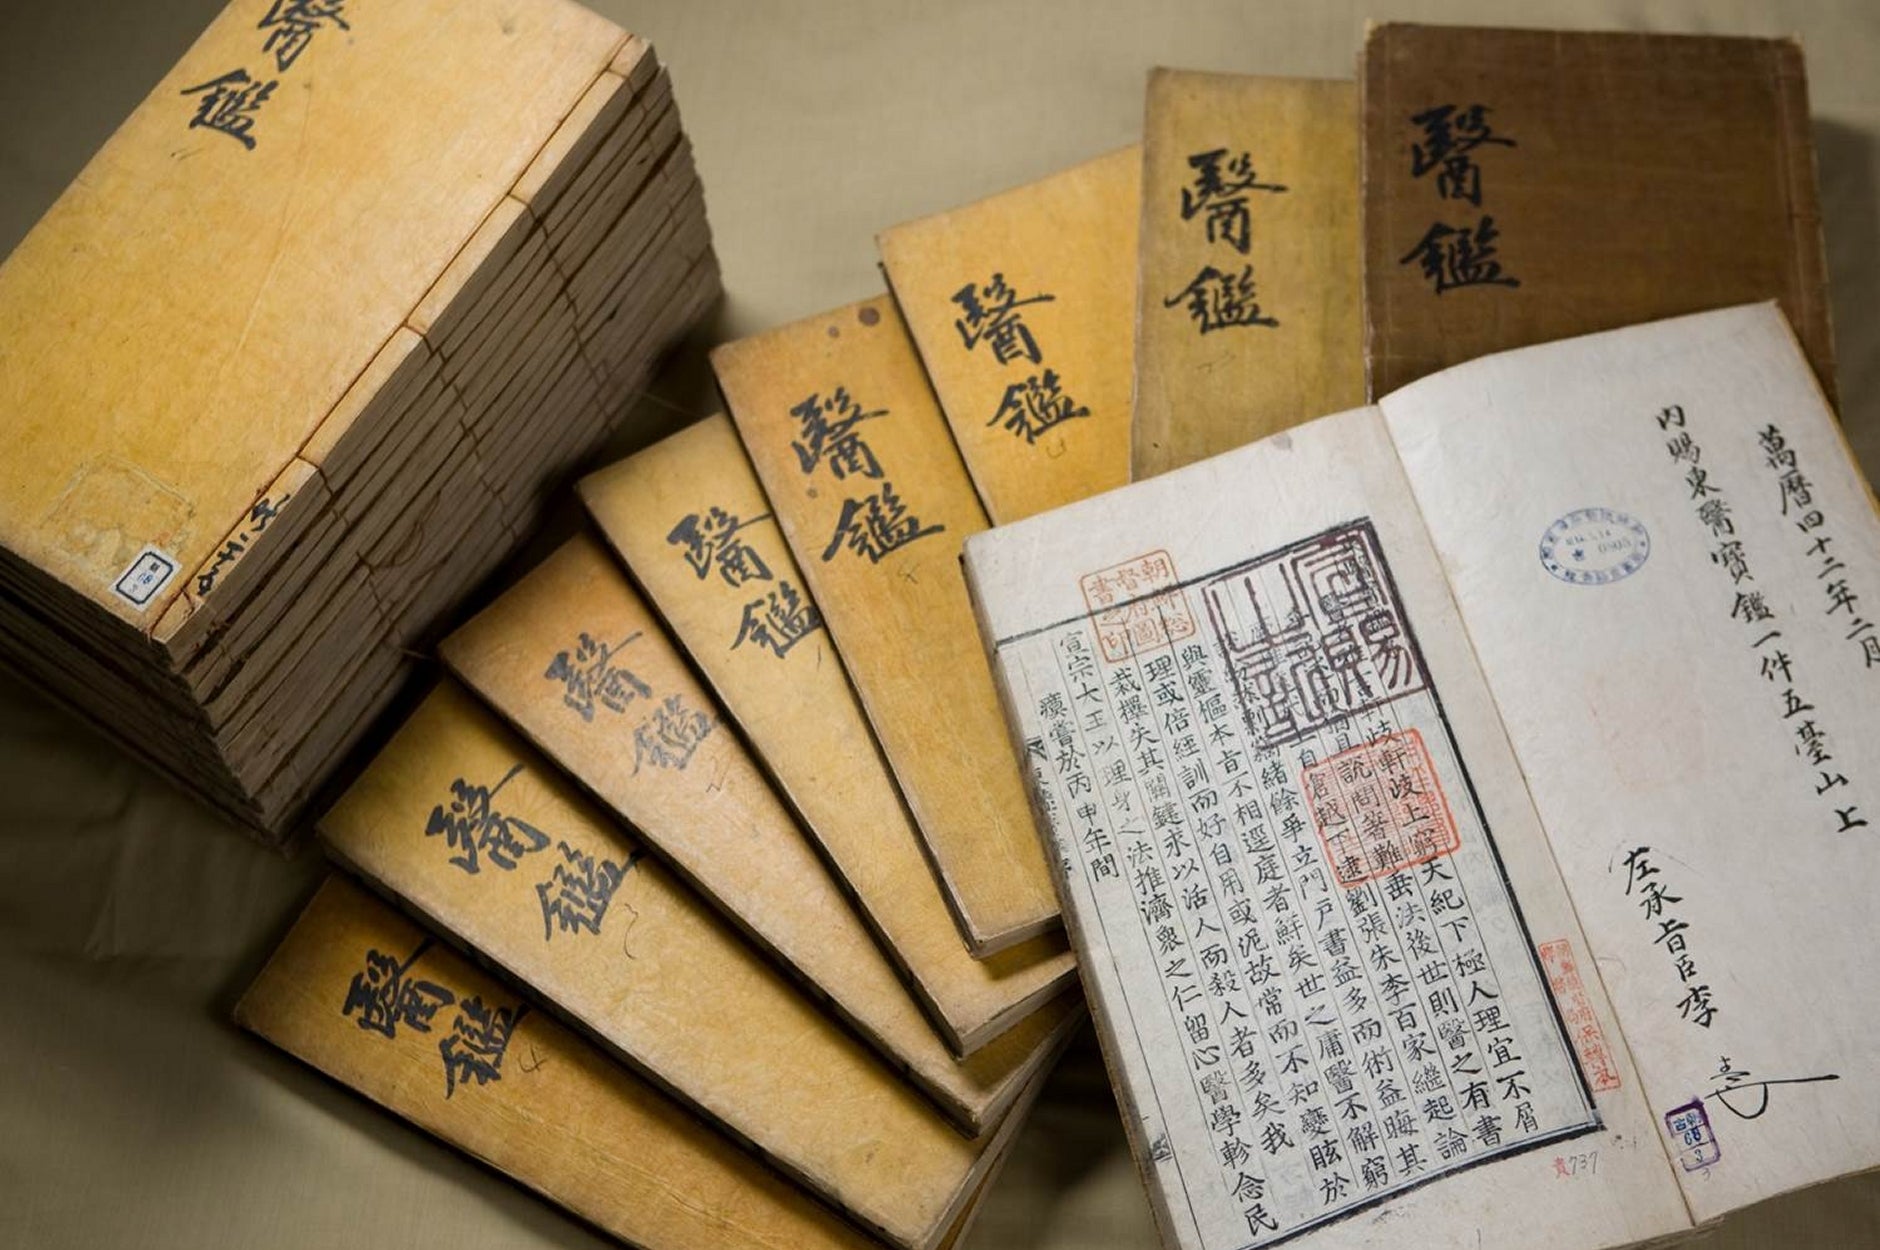 醫鑑
醫鑑
醫鑑
醫鑑
醫鑑
醫鑑
醫鑑
醫鑑
醫鑑
萬曆四十二年二月
內賜東醫寶鑑一件五臺山上
左承旨臣李
朝鮮總
督府圖
書之印
岐軒岐上窮天紀下極人理宜不屑
說問著難垂法後世則醫之有書
自倉越下逮劉張朱李百家繼起論
緒餘爭立門戶書益多而術益晦其
與靈樞本旨不相逕庭者鮮矣世之庸醫不解窮
理或倍經訓而好自用或泥故常而不知變眩於
裁擇失其關鍵求以活人而殺人者多矣我
宣宗大王以理身之法推濟衆之仁留心醫學軫念民
瘼嘗於丙申年間
貴737